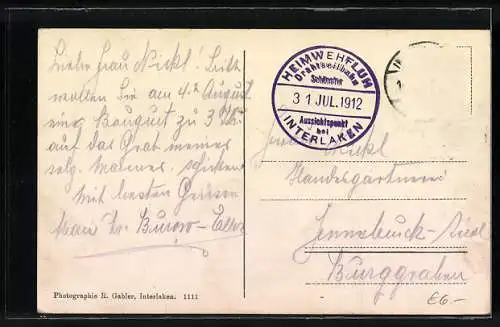 Liebe Frau Nickl! Bitte
wollen Sie am 4. August
ein Bouquet zu 3
auf das Grab meines
selg. Mannes, schicken
Mit besten Grüssen
Frau Dr. Burow-
Photographie R. Gabler, Interlaken. 1111
HEIMWEHFLUH
Drahtseilbahn
Schönster
31 JUL.1912
Aussichtspunkt
bei
INTERLAKEN
Nickl
Handelsgärtnerei
Innsbruck-
Burggraben
€6.-